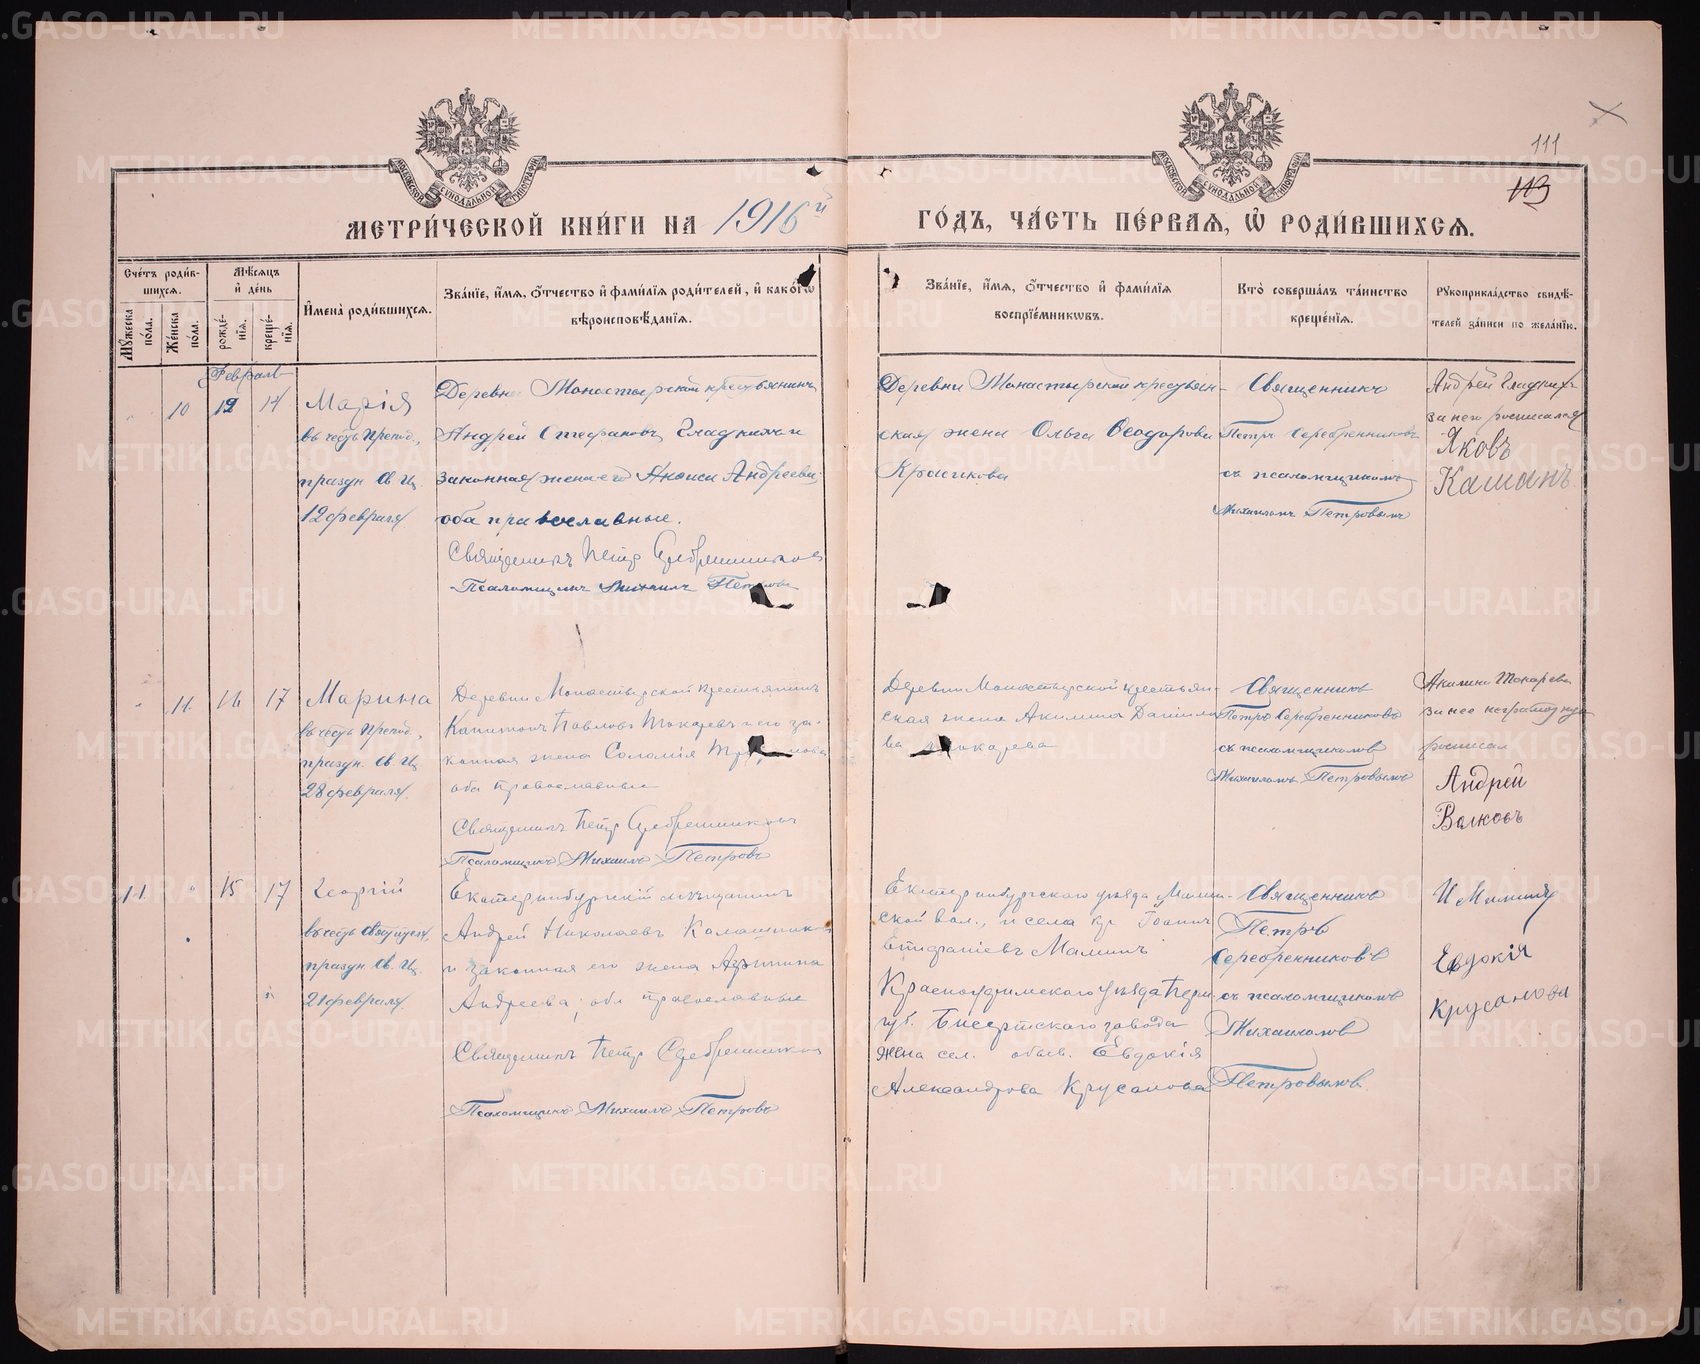 111
113
МЕТРИ́ЧЕСКОЙ КНИ́ГИ НА 1916й ГО́ДЪ, ЧА́СТЬ ПЕ́РВАЯ, Ѡ РОДИ́ВШИХСЯ.
Сче́тъ роди́в-
шихся.
Мꙋжеска пола.
Же́нска пола.
Мѣ́сяцъ и де́нь
рожде́-
нїя.
креще́-
нїя.
И҆мена̀ роди́вшихся.
Зва́нїе, и҆́мя, ѻ҆́тчество и҆ фами́лїя роди́телей, и҆ како́гѡ
вѣроисповѣ́данїя.
Зва́нїе, и҆́мя, ѻ҆́тчество и҆ фами́лїя
воспрїе́мникѡвъ.
Кто̀ соверша́лъ та́инство
креще́нїя.
Рꙋкоприкла́дство свидѣ́-
телей за́писи по жела́нїю.
Февраль
10 12 14
Марія
въ честь Препод.,
праздн. Св. Ц.
12 февраля
Деревни Монастырской крестьянинъ
Андрей Стефановъ Гладкихъ и
законная жена его Анѳиса Андреева
оба православные.
Священникъ Петръ Серебренниковъ
Псаломщикъ Михаилъ Петровъ
Деревни Монастырской крестьян-
ская жена Ольга Ѳеодорова
Священникъ
Петръ Серебренниковъ
съ псаломщикомъ
Михаиломъ Петровымъ
Андрей Гладкихъ
за него росписался
Яковъ
11 16 17
Марина
въ честь Препод.,
праздн. Св. Ц.
28 февраля.
Деревни Монастырской крестьянинъ
Капитонъ Павловъ Токаревъ и его за-
конная жена Соломія
оба православные
Священникъ Петръ Серебренниковъ
Псаломщикъ Михаилъ Петровъ
Деревни Монастырской крестьян-
ская жена Акилина Данило-
ва Токарева
Священникъ
Петръ Серебренниковъ
съ псаломщикомъ
Михаиломъ Петровымъ
Акилина Токарева
за нее неграмотную
росписал
Андрей
Волковъ
11 15 17
Георгій
въ честь
праздн. Св. Ц.
21 февраля.
Екатеринбургскій мѣщанинъ
Андрей Николаевъ Калашников
и законная его жена Агрипина
Андреева; оба православные
Священникъ Петръ Серебренников
Псаломщикъ Михаилъ Петровъ
Екатеринбургскаго уѣзда
ской вол., и села кр. Іоаннъ
Мамин
Красноуфимскаго уѣзда Перм.
губ. Бисертскаго завода
жена сел. обыв. Евдокія
Александрова Крусанова
Священникъ
Петръ
Серебренниковъ
съ псаломщикомъ
Михаиломъ
Петровымъ.
И Мамин
Евдокія
Крусанова